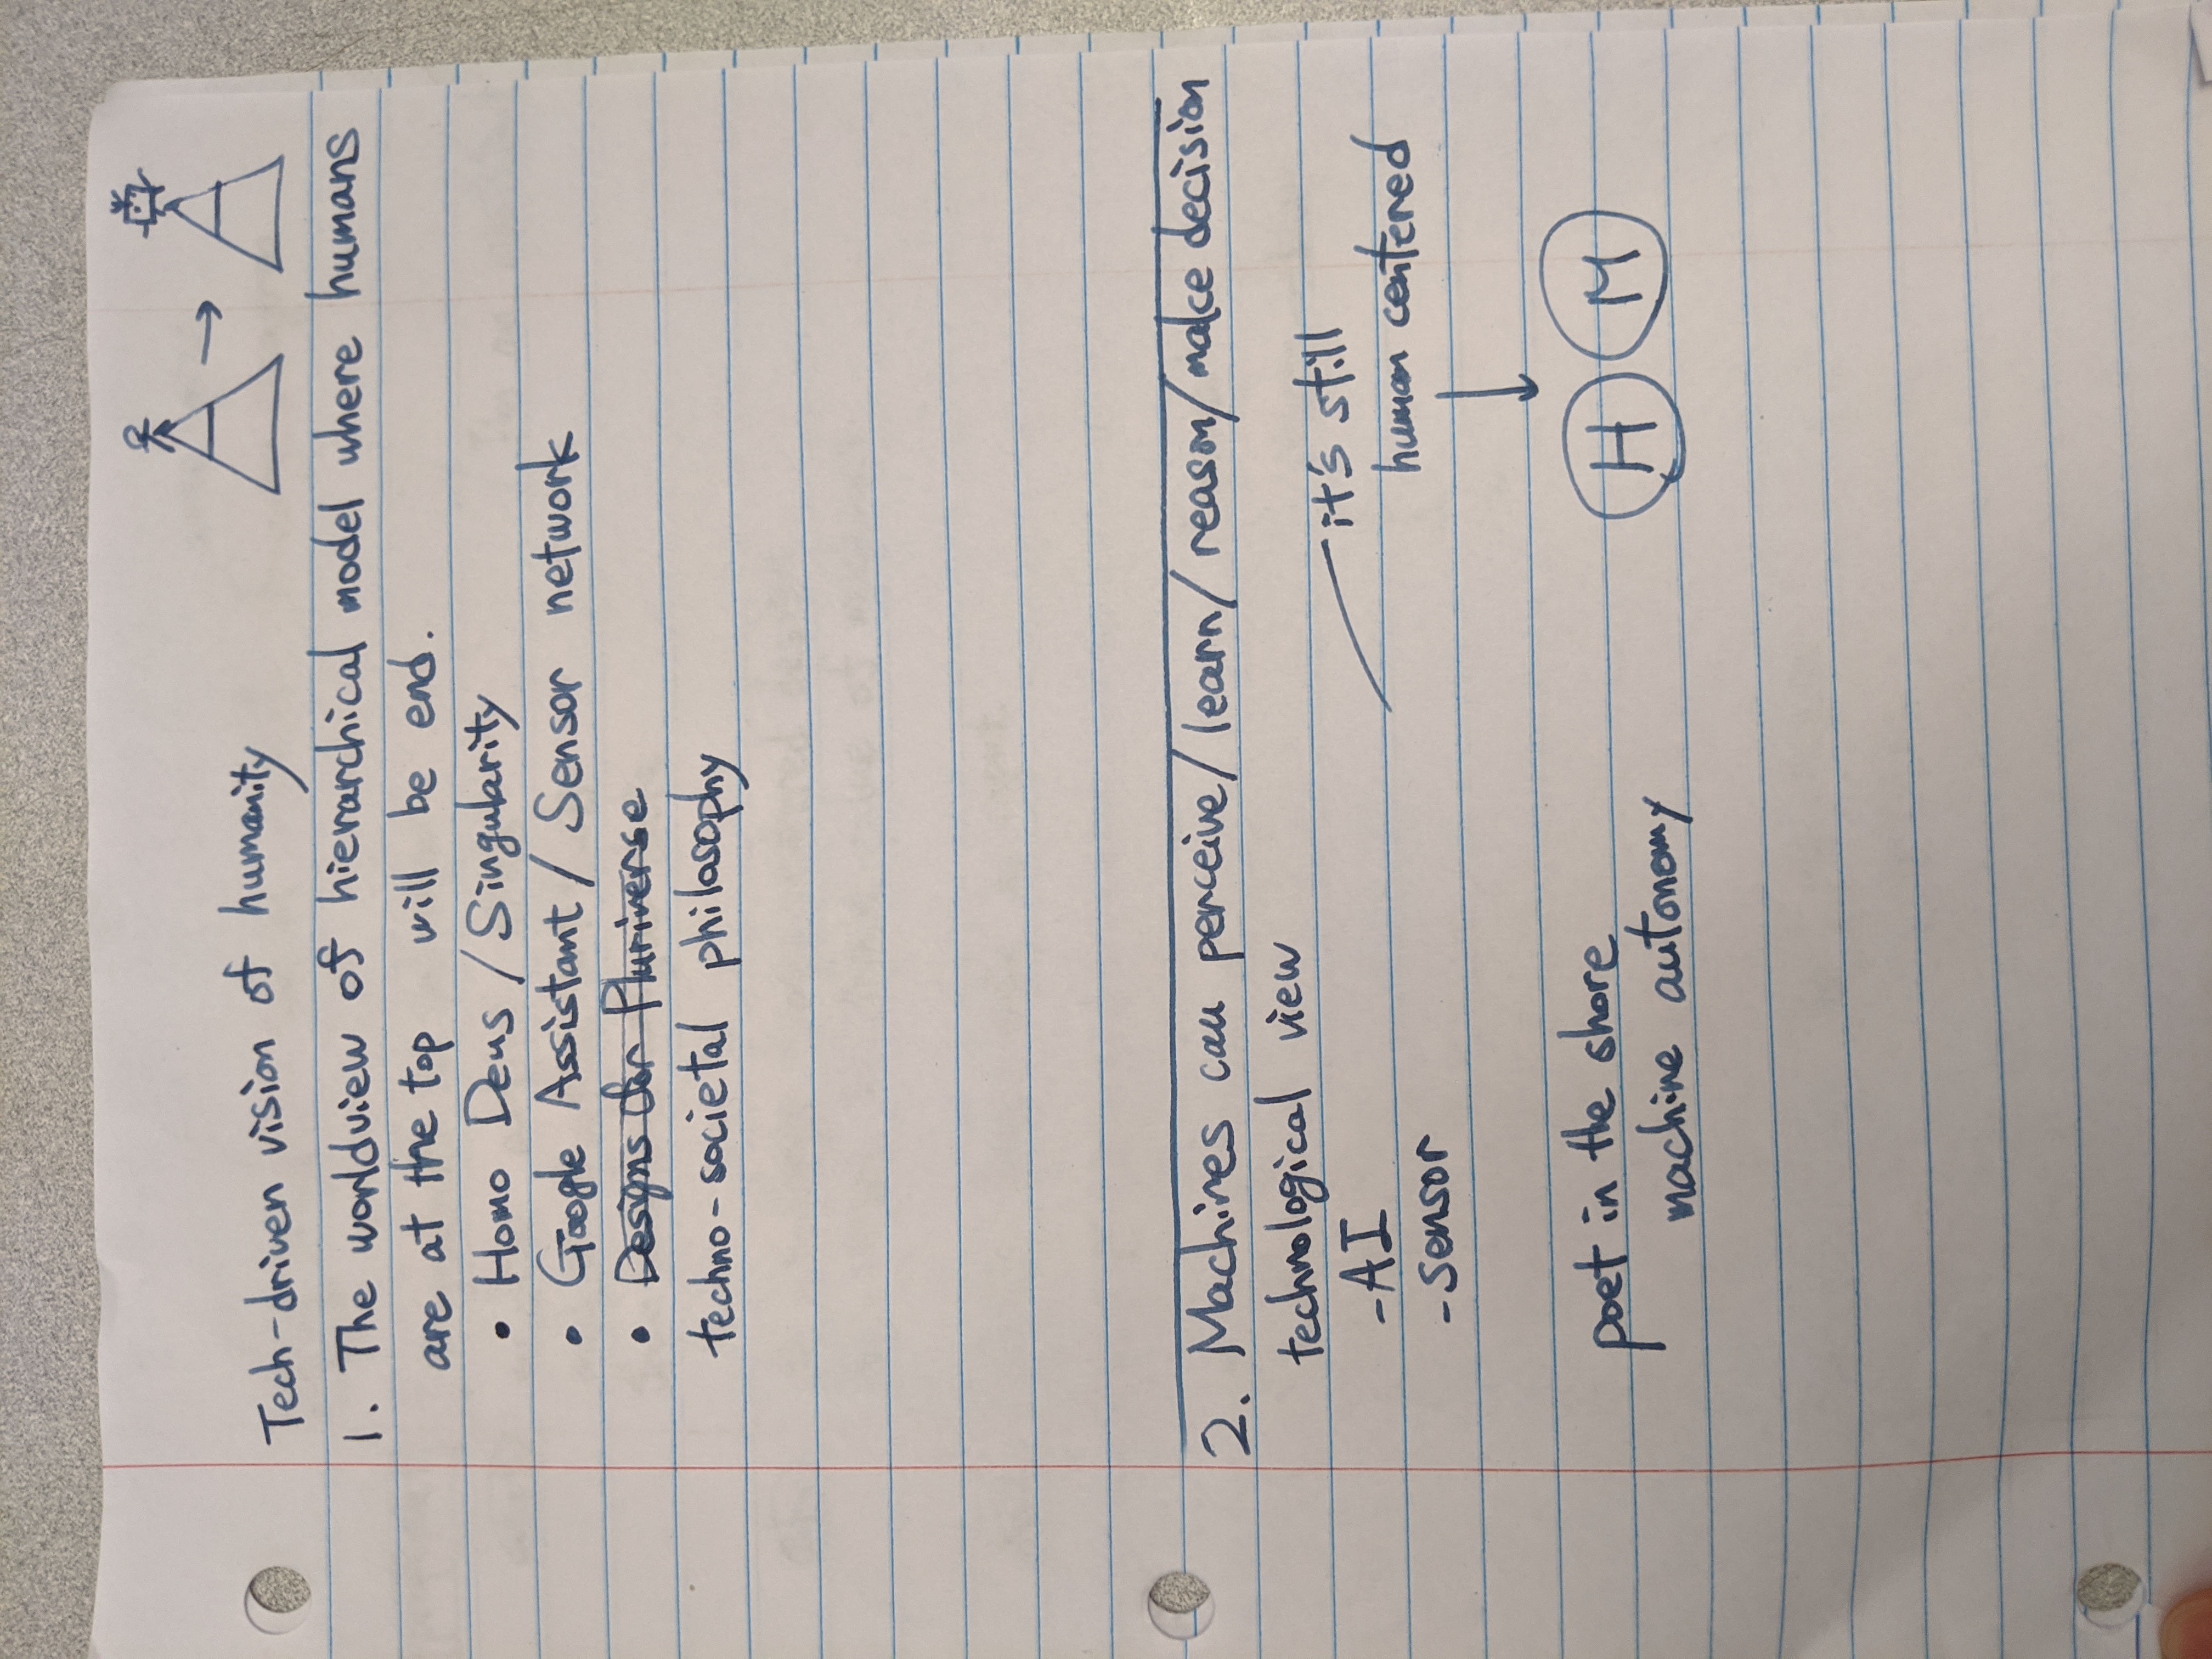 Tech-driven vision of humanity
1. The worldview of hierarchical model where humans
are at the top will be end.
• Homo Deus / Singularity
• Google Assistant / Sensor network
• Designs for Pluriverse
techno-societal philosophy
2. Machines can perceive/learn/reason/make decision
technological view
-AI
-sensor
it's still
human centered
H M
poet in the shore
machine autonomy